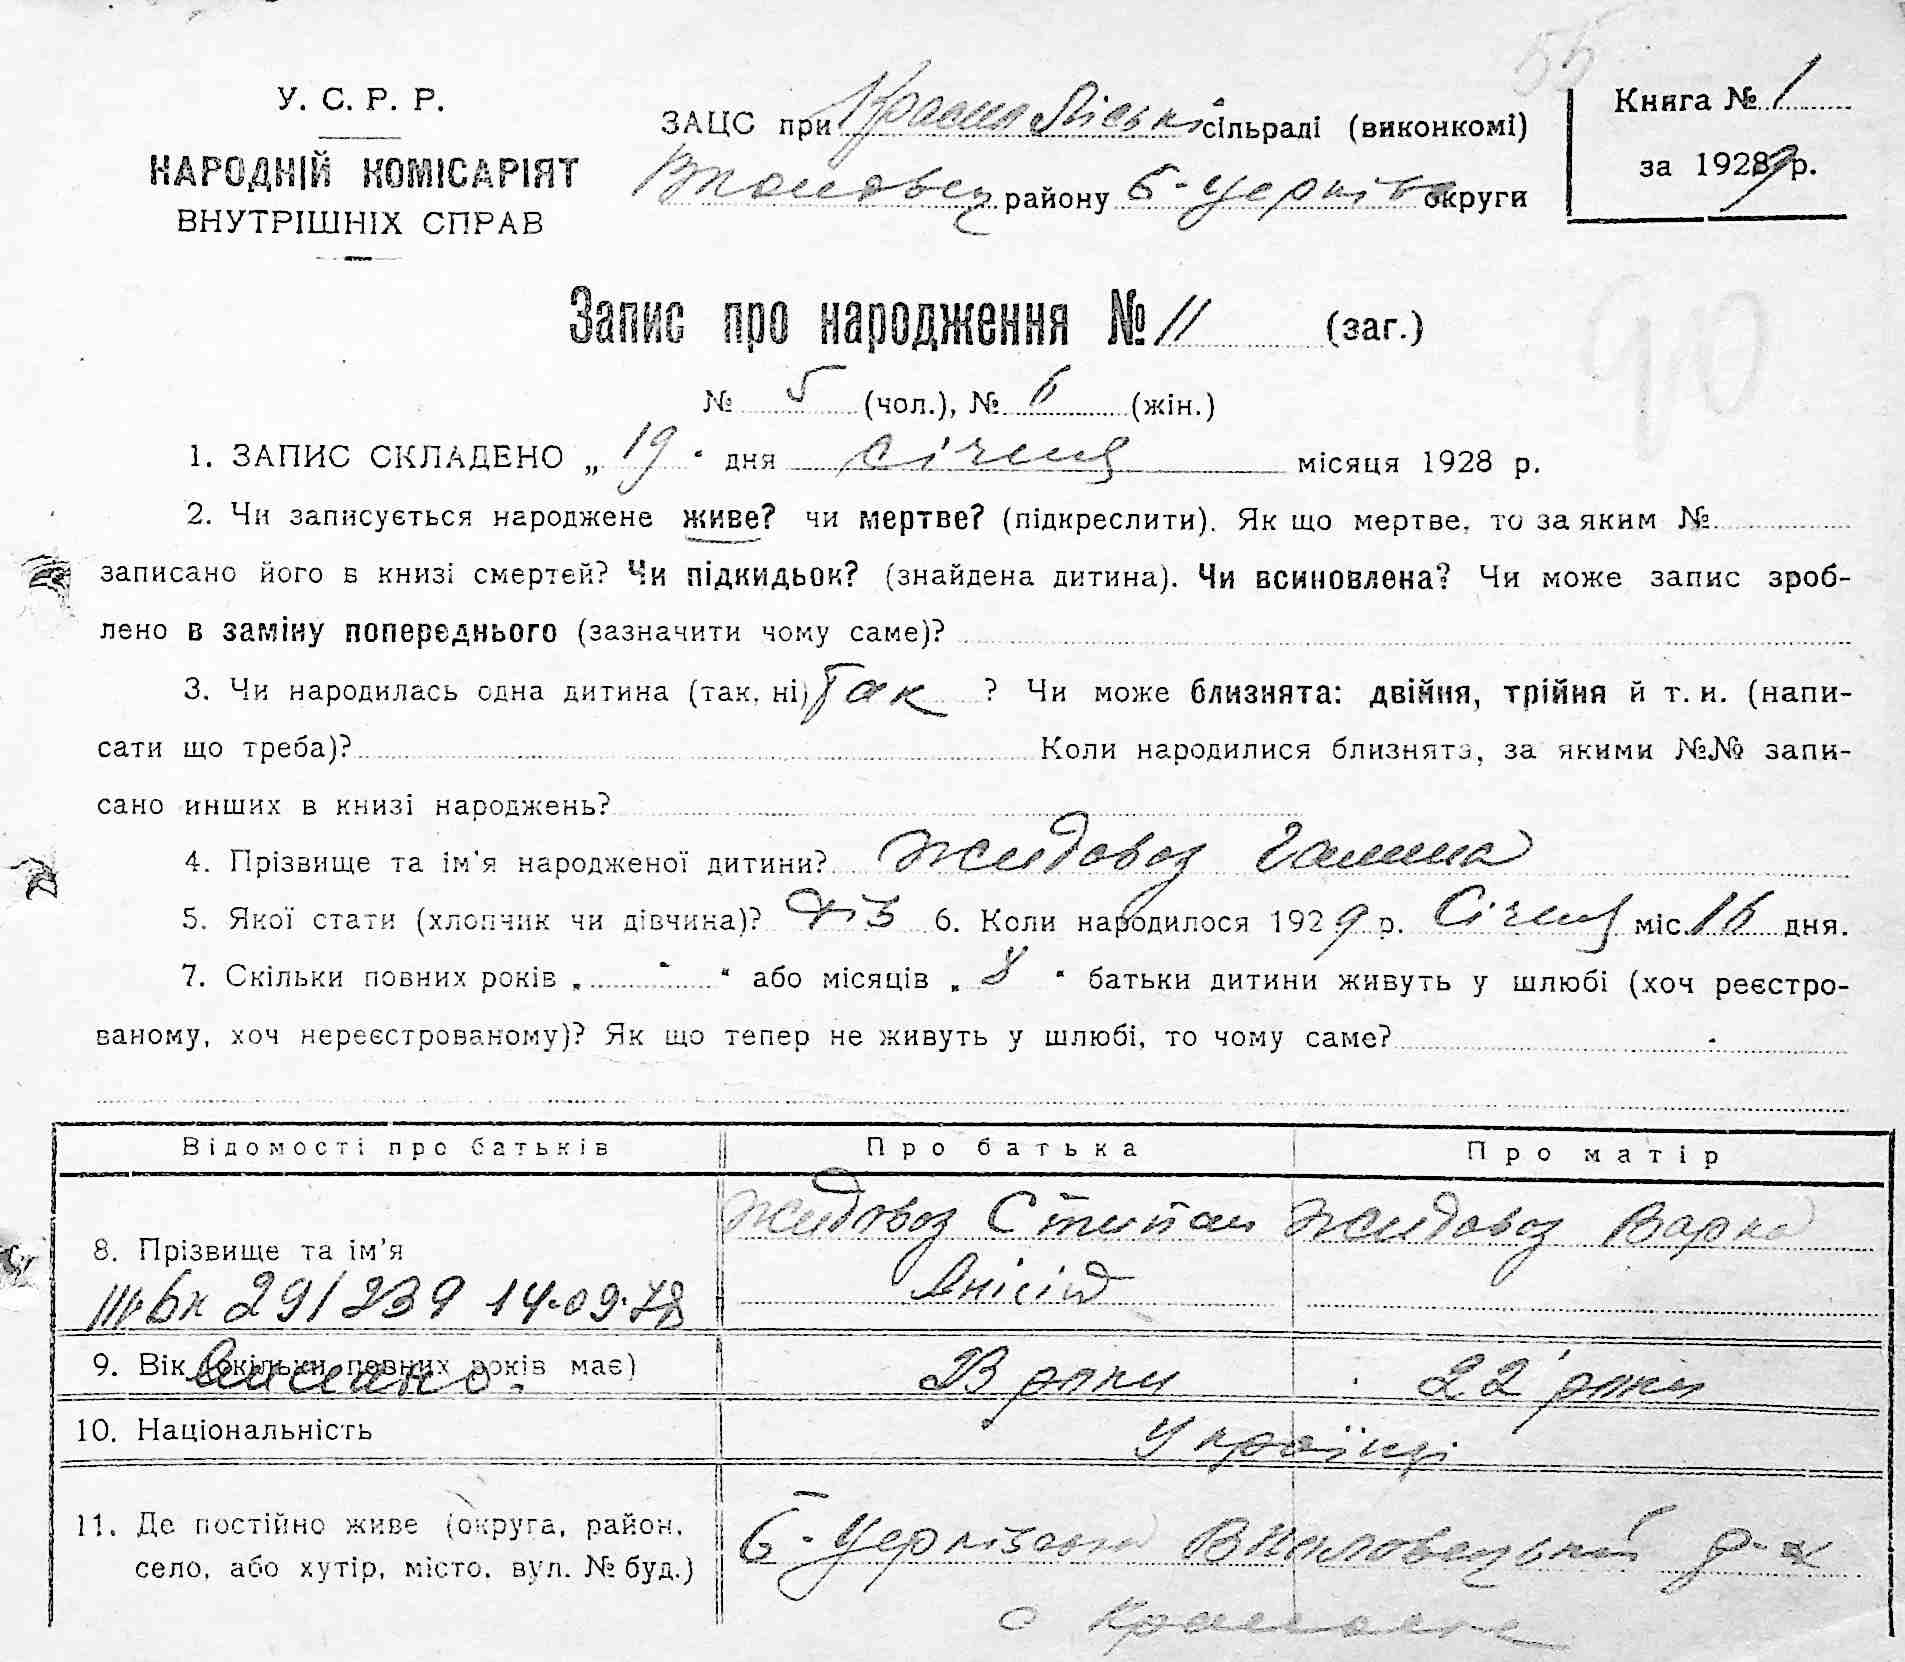 У. С. Р. Р.
НАРОДНІЙ КОМІСАРІЯТ
ВНУТРІШНІХ СПРАВ
ЗАЦС при сільраді (виконкомі)
району Б-Черків округи
Книга № 1
за 1929 р.
Запис про народження № 11 (заг.)
№ 5 (чол.), № 6 (жін.)
1. ЗАПИС СКЛАДЕНО „ 19 “ дня січень місяця 1928 р.
2. Чи записується народжене живе? чи мертве? (підкреслити). Як що мертве, то за яким №
записано його в книзі смертей? Чи підкидьок? (знайдена дитина). Чи всиновлена? Чи може запис зроб-
лено в заміну попереднього (зазначити чому саме)?
3. Чи народилась одна дитина (так, ні) Так ? Чи може близнята: двійня, трійня й т. и. (напи-
сати що треба)? Коли народилися близнята, за якими №№ запи-
сано инших в книзі народжень?
4. Прізвище та ім'я народженої дитини? Жидовоз Галина
5. Якої стати (хлопчик чи дівчина)? Дів 6. Коли народилося 1929 р. Січень міс. 16 дня.
7. Скільки повних років „ - “ або місяців „ 8 “ батьки дитини живуть у шлюбі (хоч реєстро-
ваному, хоч нереєстрованому)? Як що тепер не живуть у шлюбі, то чому саме?
Відомості про батьків Про батька Про матір
8. Прізвище та ім'я Жидовоз Степан Жидовоз Варка
29/239 14.09.78
9. Вік (скільки повних років має) 23 роки 22 роки
10. Національність Українці
11. Де постійно живе (округа, район,
село, або хутір, місто, вул. № буд.)